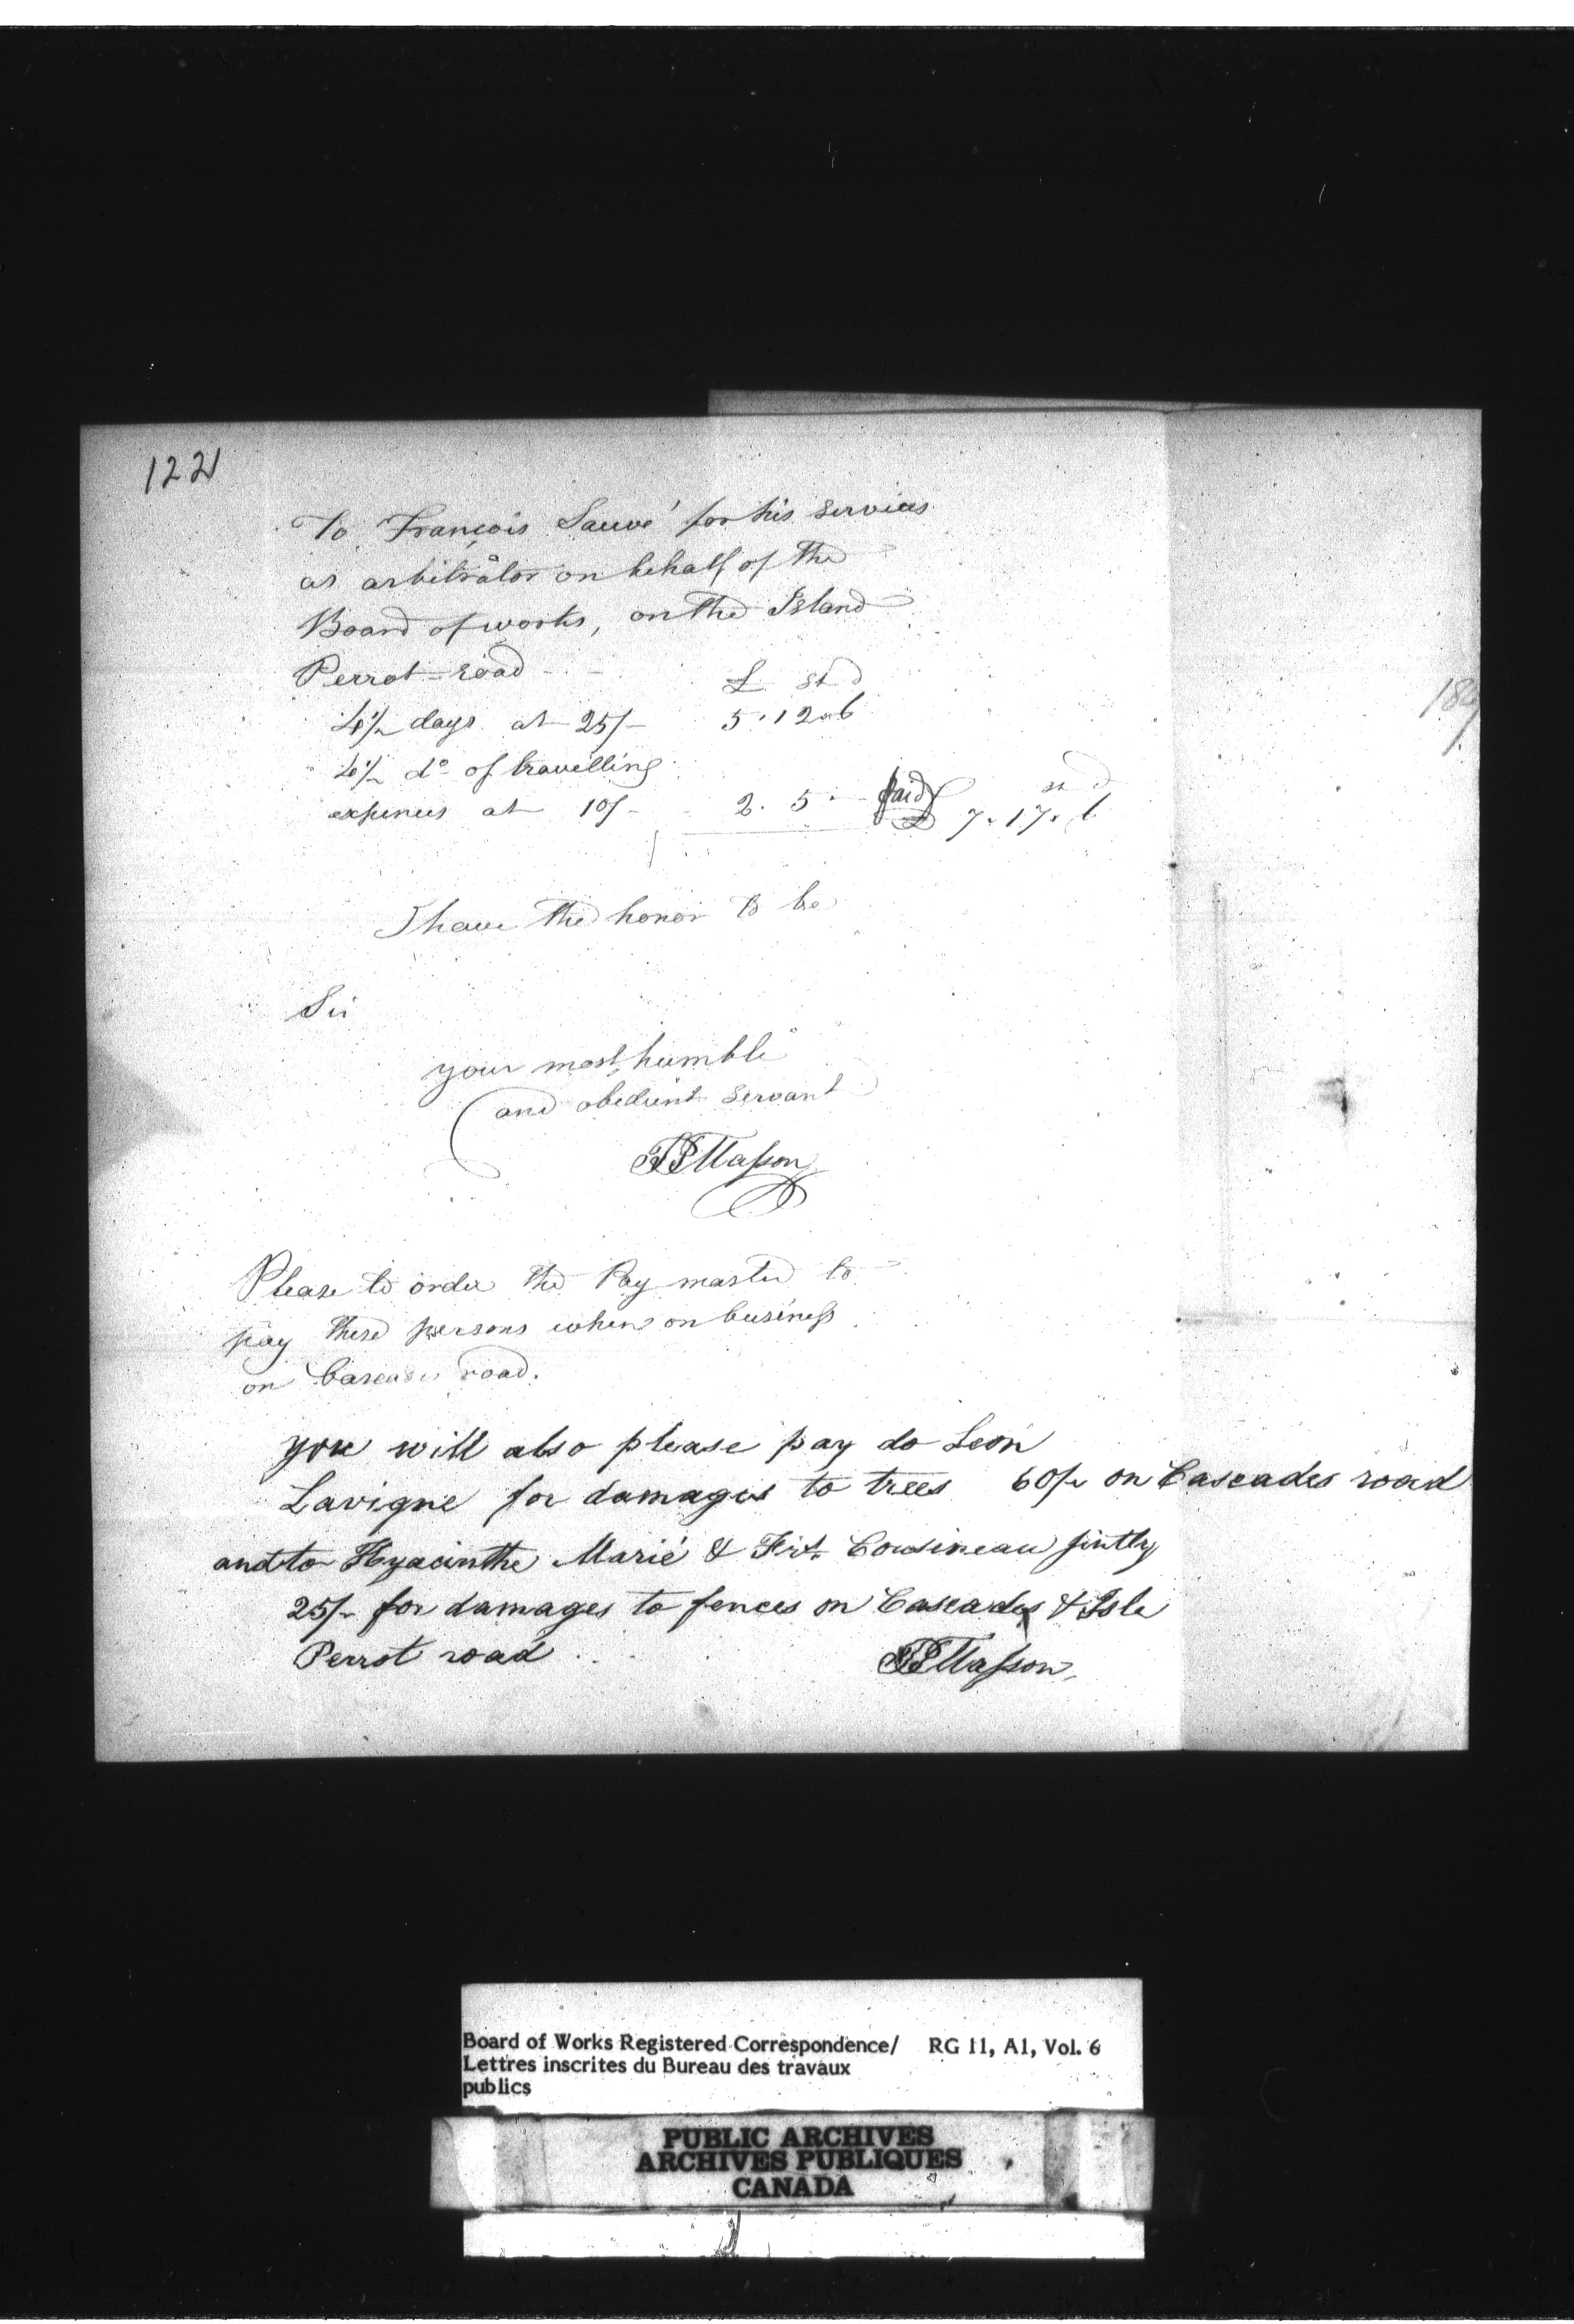 1221
To François Sauvé for his services
as arbitrator on behalf of the
Board of works, on the Island
Perrot road - - £ s d
4½ days at 25/- 5. 12. 6
4½ do of travelling
expenses at 10/- 2. 5. - Paid £ 7. 17. 6
189
I have the honor to be
Sir
your most humble
and obedient servant
Masson
Please to order the Pay master to
pay these persons when on business
on Cascades road.
you will also please pay do Leon
Lavigne for damages to trees 60/- on Cascades road
and to Hyacinthe Marié & Frs. Cousineau jintly
25/- for damages to fences on Cascades & Isle
Perrot road
Masson
Board of Works Registered Correspondence/ RG 11, A1, Vol. 6
Lettres inscrites du Bureau des travaux
publics
PUBLIC ARCHIVES
ARCHIVES PUBLIQUES
CANADA